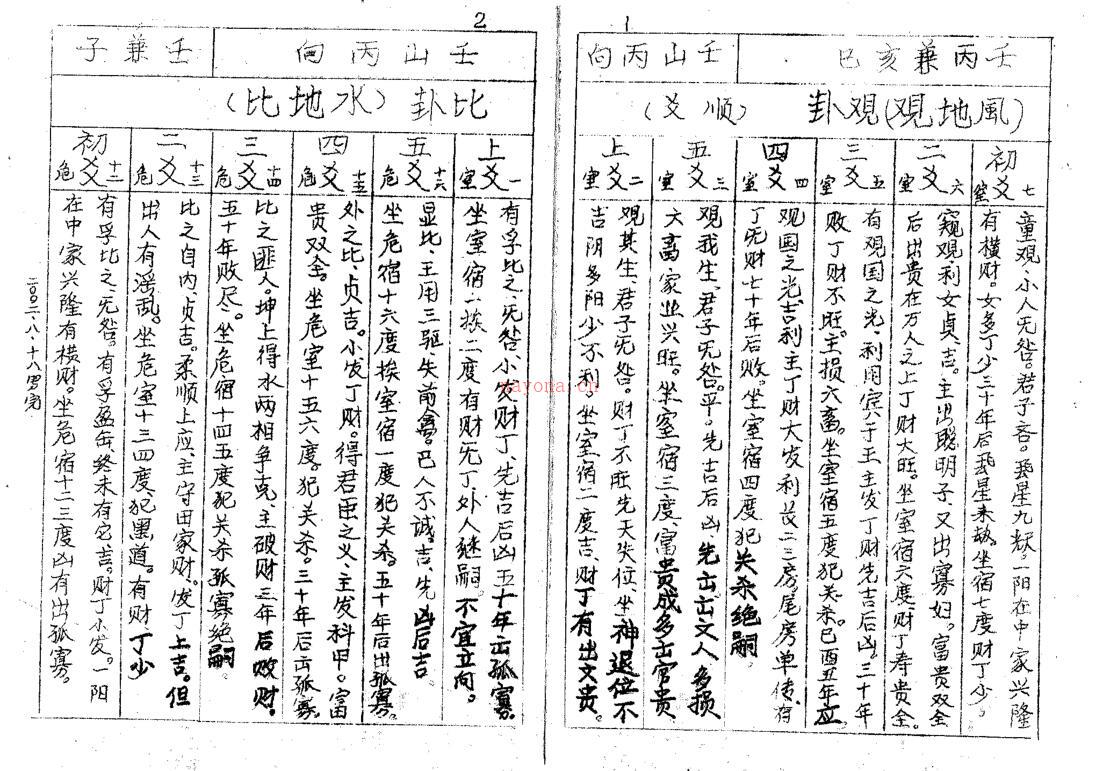 1
壬丙兼亥巳
壬山丙向
卦观(风地观)
(顺爻)
初爻
七
室
童观、小人无咎。君子吝。
一阳在中家兴隆
有横财。女多丁少三十年后
坐宿七度财丁少。
二爻
六
室
窥观利女贞、吉。主出聪明子、又出寡妇。富贵双全
后出贵在万人之上丁财大旺。坐室宿六度财丁寿贵全。
三爻
五
室
有观国之光、利用宾于王主发丁财先吉后凶。三十年
败丁财不旺。主损六畜。坐室宿五度犯关杀。巳酉丑年应
四爻
四
室
观国之光、吉利主丁财大发利长二三房、尾房单传、有
丁无财七十年后败。坐室宿四度犯关杀绝嗣
五爻
三
室
观我生、君子无咎。平。先吉后凶先出文人多损
六畜家业兴旺。坐室宿三度、富贵成多出官贵、
上爻
二
室
观其生、君子无咎。财丁不旺先天失位、坐神退位不
吉阴多阳少不利。坐室宿二度吉、财丁有出文贵。
2
壬山丙向
壬兼子
比卦(水地比)
上爻
一
室
有孚比之、无咎、小发财丁、先吉后凶五十年出孤寡。
坐室宿一挨二度有财无丁、外人继嗣。不宜立向。
五爻
十六
危
显比、王用三驱、失前禽。邑人不诫。吉、先凶后吉
坐危宿十六度挨室宿一度犯关杀。五十年后出孤寡。
四爻
十五
危
外之比、贞吉。小发丁财。得君臣之义、主发科甲。富
贵双全。坐危室十五六度。犯关杀。三十年后出孤寡。
三爻
十四
危
比之匪人。坤上得水两相争克、主破财三年后败财。
五十年败尽。坐危宿十四五度犯关杀孤寡绝嗣
二爻
十三
危
比之自内、贞吉。柔顺上应、主守田家财。发丁上吉。但
出人有淫乱。坐危室十三四度、犯黑道。有财、丁少
初爻
十二
危
有孚比之、无咎。有孚盈缶、终来有它吉。财丁小发。一阳
在中家兴隆有横财。坐危宿十二三度凶有出孤寡。
二〇〇二.八.十八写完
nayona.cn